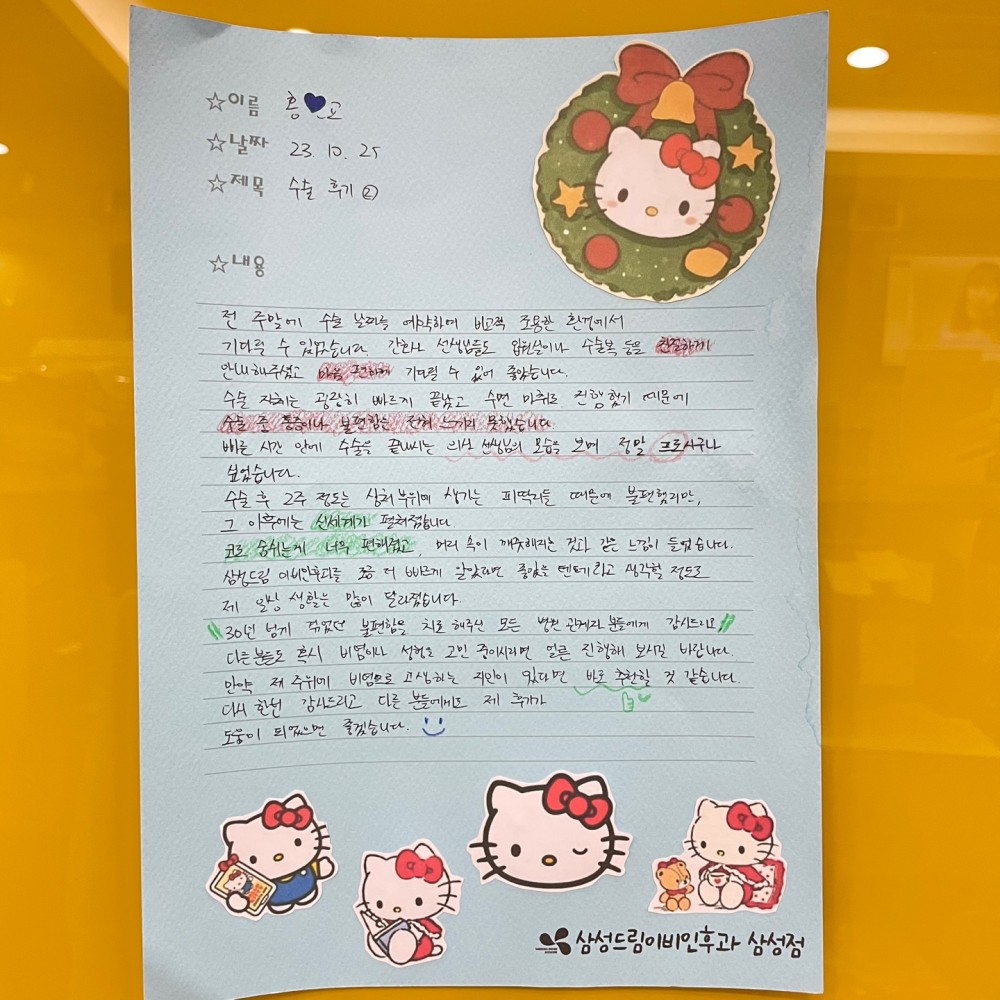 ☆이름 홍♥교
☆날짜 23. 10. 25
☆제목 수술 후기 ②
☆내용
전 주말에 수술 날짜를 예약하여 비교적 조용한 환경에서
기다릴 수 있었습니다. 간호사 선생님들도 입원실이나 수술복 등을 친절하게
안내해주셨고 마음 편하게 기다릴 수 있어 좋았습니다.
수술 자체는 굉장히 빠르게 끝났고 수면 마취로 진행했기 때문에
수술 중 통증이나 불편함은 전혀 느끼지 못했습니다
빠른 시간 안에 수술을 끝내시는 의사 선생님의 모습을 보며 정말 프로시구나
싶었습니다.
수술 후 2주 정도는 상처부위에 생기는 피딱지들 때문에 불편했지만,
그 이후에는 신세계가 펼쳐졌습니다
코로 숨쉬는게 너무 편해졌고, 머리 속이 깨끗해지는 것과 같은 느낌이 들었습니다.
삼성드림 이비인후과를 조금 더 빠르게 알았다면 좋았을 텐데라고 생각할 정도로
제 일상 생활은 많이 달라졌습니다.
30년 넘게 겪었던 불편함을 치료해주신 모든 병원 관계자 분들에게 감사드리고,
다른분들도 혹시 비염이나 성형을 고민 중이시라면 얼른 진행해 보시길 바랍니다.
만약 제 주위에 비염으로 고생하는 지인이 있다면 바로 추천할 것 같습니다.
다시 한번 감사드리고 다른 분들에게도 제 후기가
도움이 되었으면 좋겠습니다.
삼성드림이비인후과 삼성점